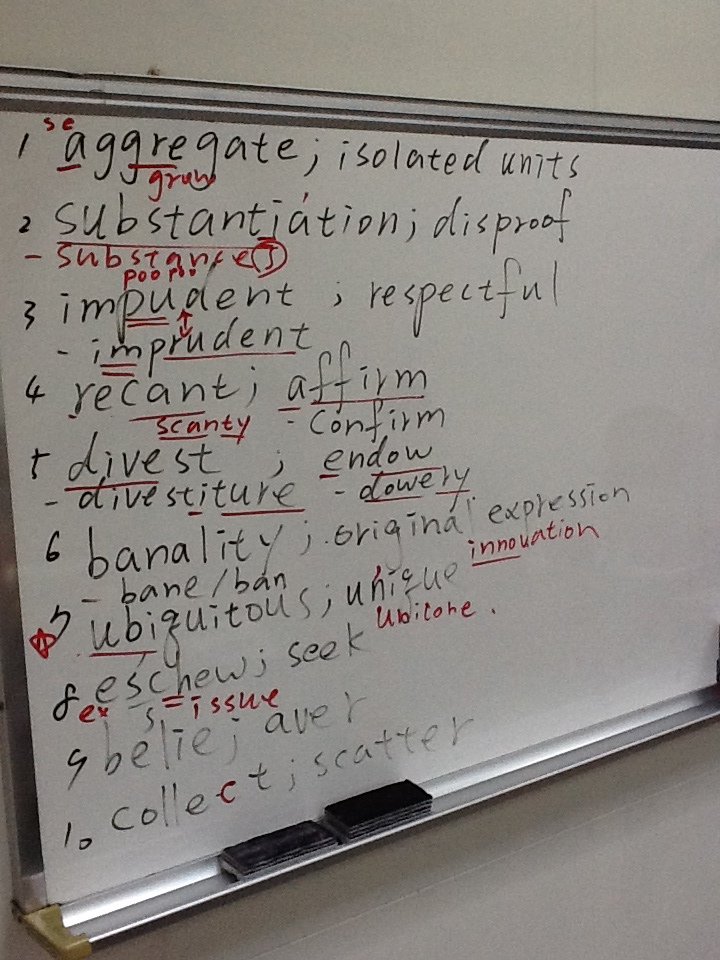 se
1 aggregate; isolated units
grum
2 substantiation; disproof
- substance
poo poo
3 impudent ; respectful
- imprudent
4 recant; affirm
scanty - confirm
5 divest ; endow
- divestiture - dowery
6 banality; original expression
- bane/ban innovation
7 ubiquitous; unique
Ubicone.
8 eschew; seek
ex s = issue
9 belie; aver
10 collect; scatter